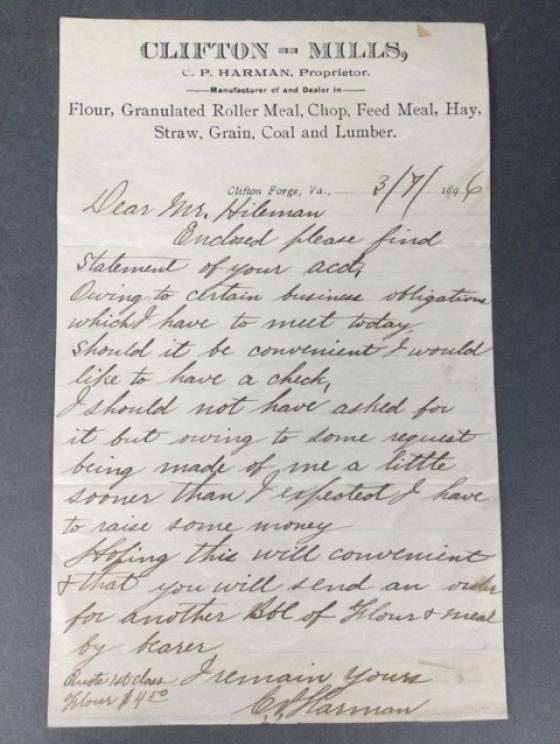 CLIFTON = MILLS,
C. P. HARMAN, Proprietor.
Manufacturer of and Dealer in
Flour, Granulated Roller Meal, Chop, Feed Meal, Hay,
Straw, Grain, Coal and Lumber.
Clifton Forge, Va., 3/7/ 1896
Dear Mr. Hileman
Enclosed please find
Statement of your acct,
Owing to certain business obligations
which I have to meet today,
Should it be convenient I would
like to have a check,
I should not have asked for
it but owing to some request
being made of me a little
sooner than I expected I have
to raise some money
Hoping this will convenient
& that you will send an order
for another Bbl of Flour & meal
by bearer
I remain yours
Quote 1st class
Flour $4.50
C. P. Harman